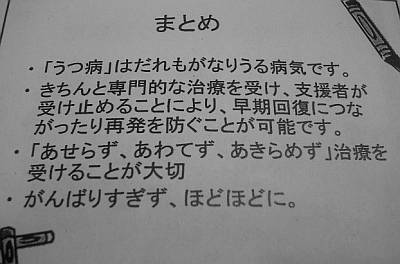 まとめ
・「うつ病」はだれもがなりうる病気です。
・きちんと専門的な治療を受け、支援者が
受け止めることにより、早期回復につな
がったり再発を防ぐことが可能です。
・「あせらず、あわてず、あきらめず」治療を
受けることが大切
・がんばりすぎず、ほどほどに。